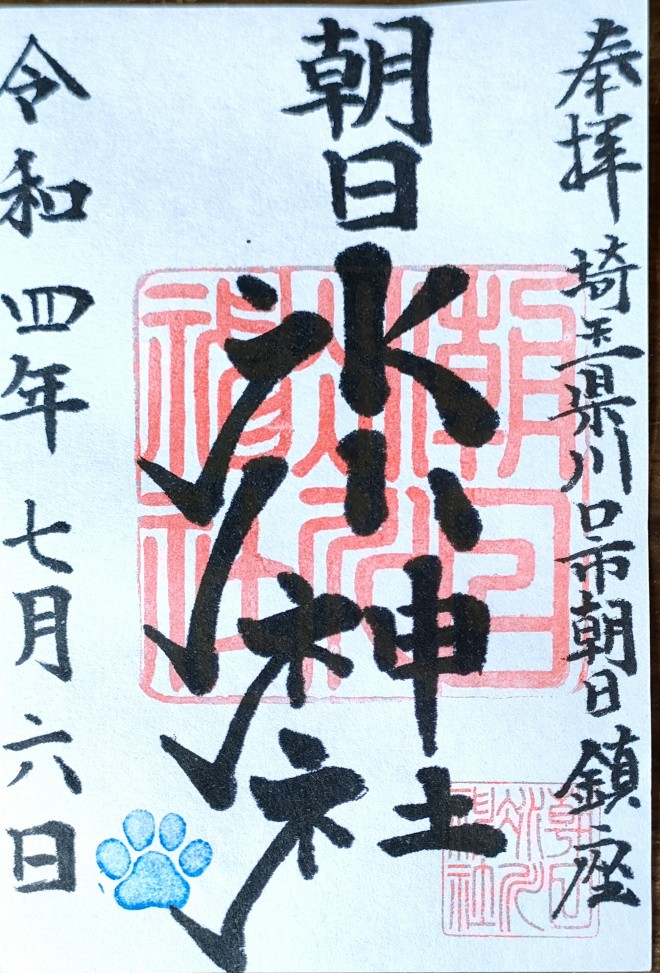 奉拝 埼玉県川口市朝日鎮座
朝日氷川神社
令和四年七月六日
朝日氷川神社